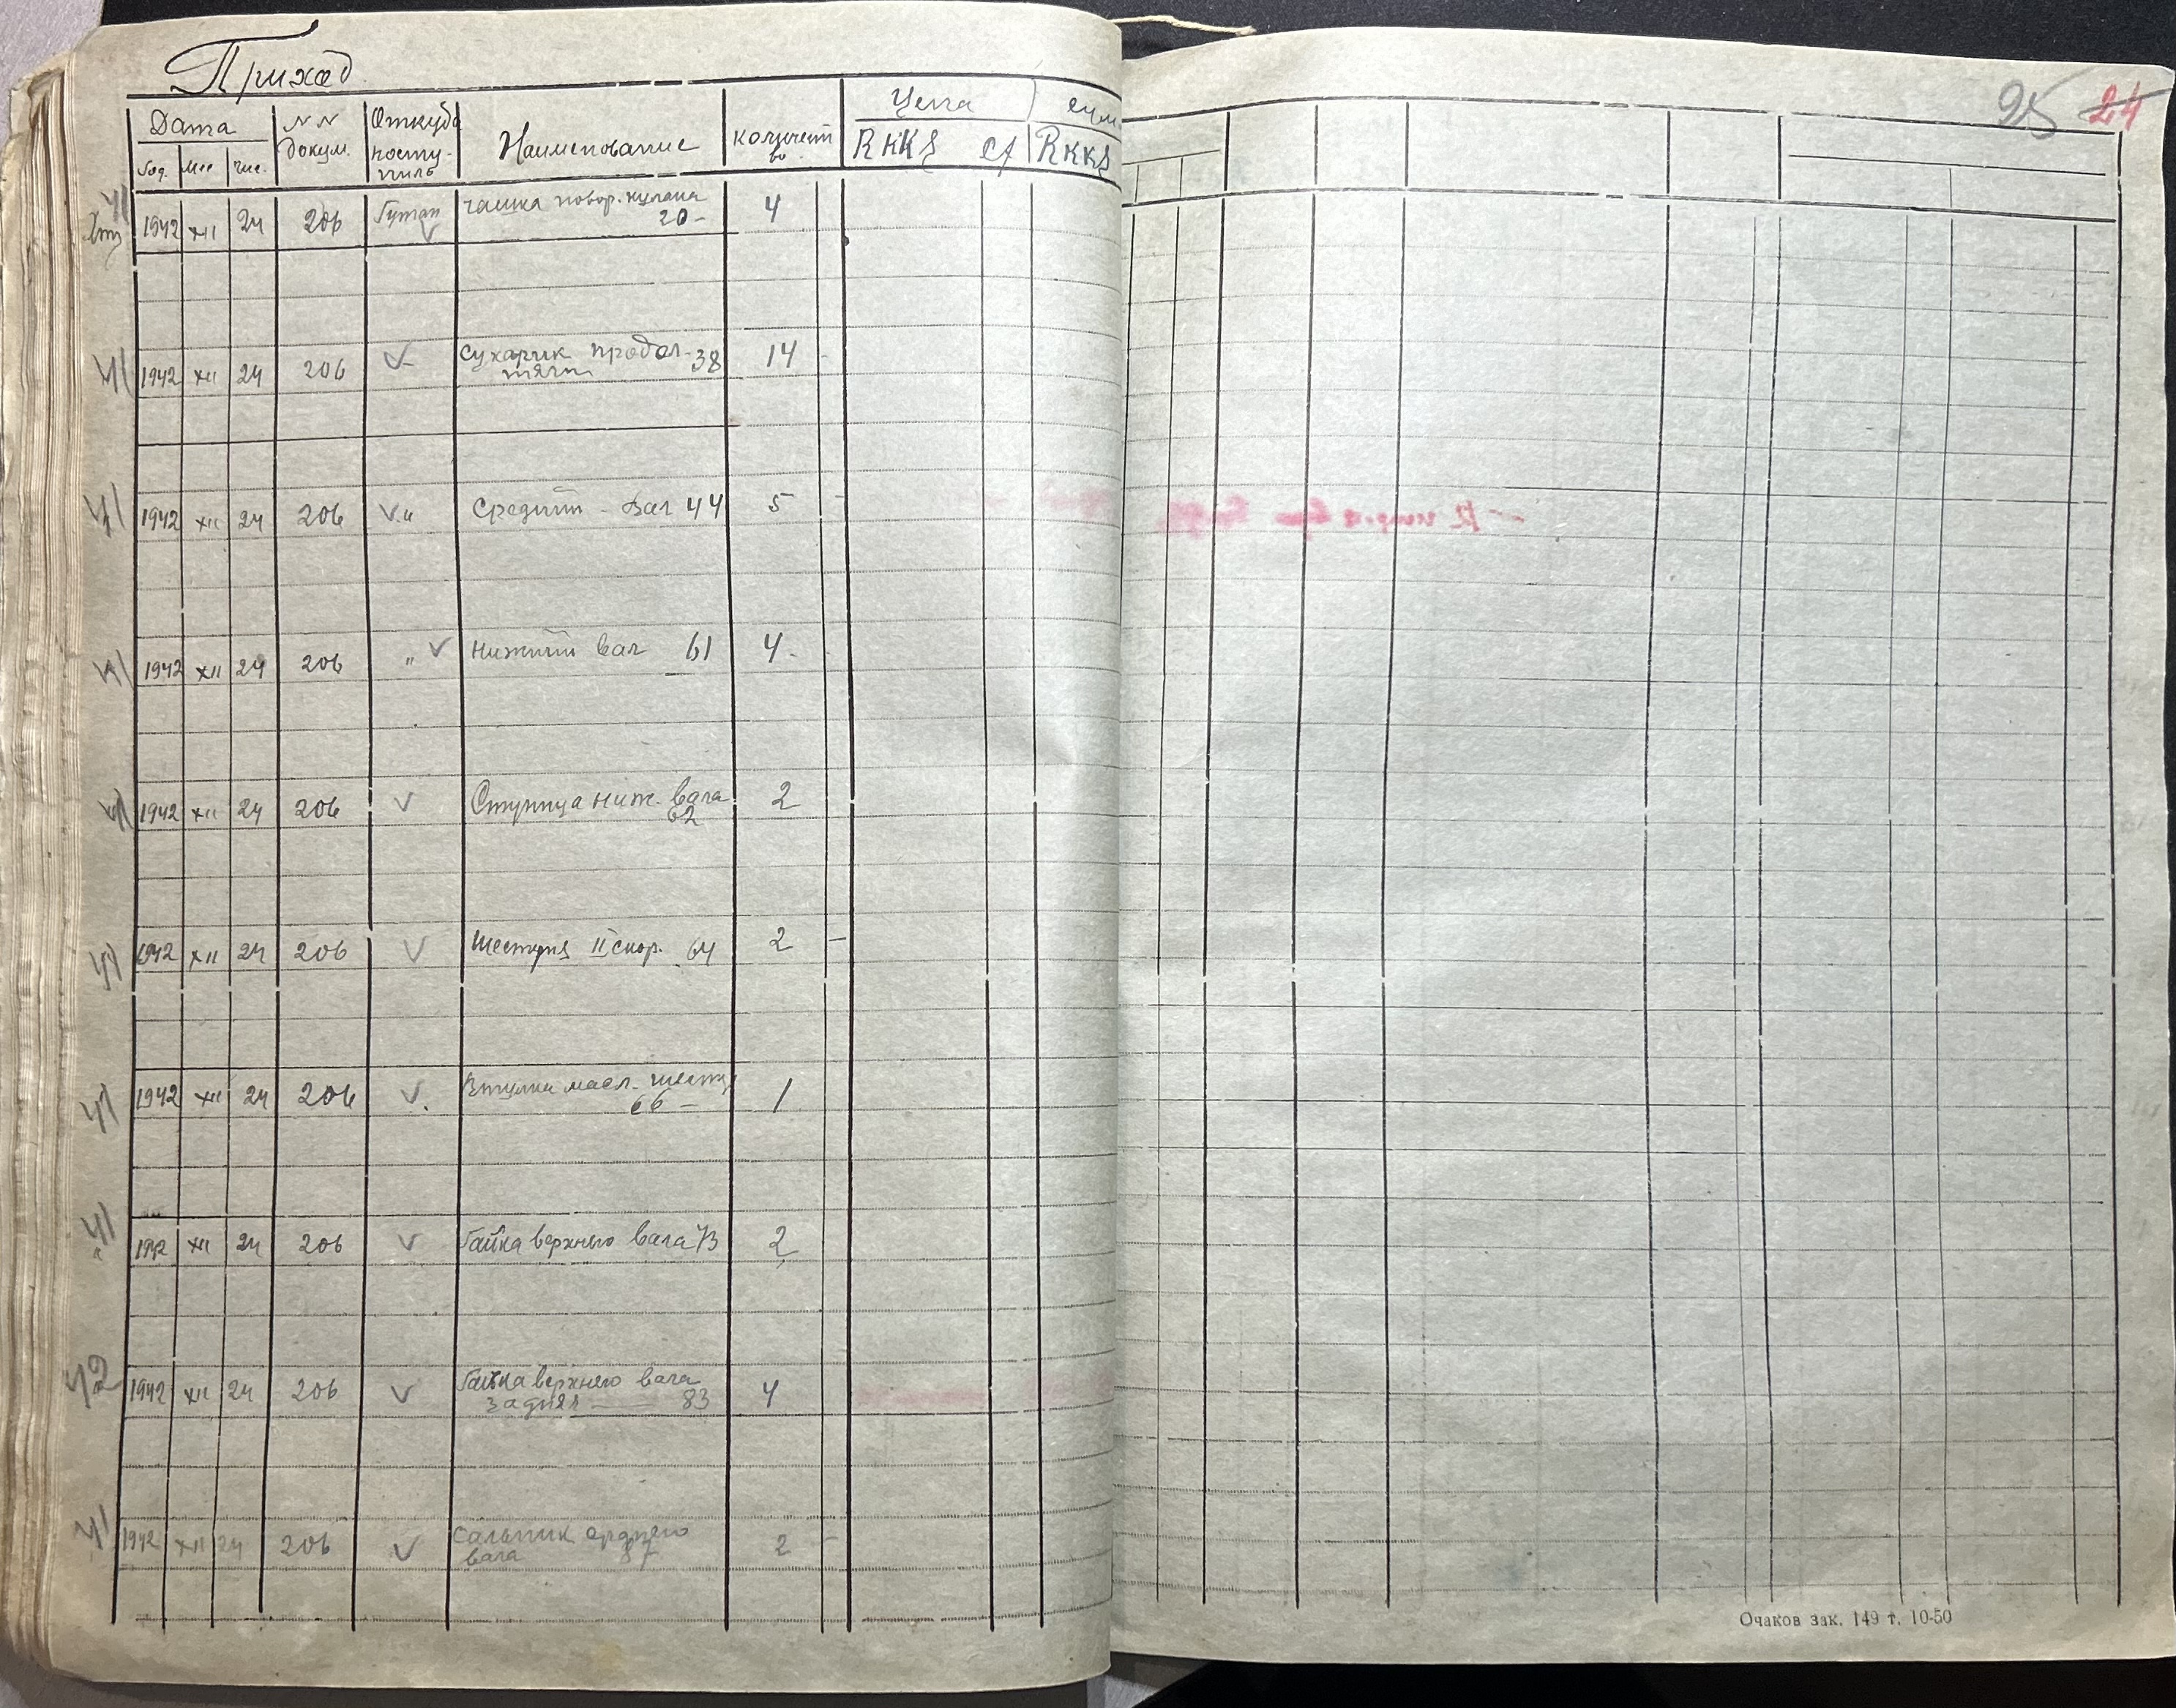 Приход
25 24
Дата
N N докум.
Откуда посту-пиль
Наименование
Количеств во
Цена
Сум
Год. Мес Чис.
RKKS
RKKS
41
1942 XII 24 206 Гутап чашка повор. кулака 4
20-
41 1942 XII 24 206 сухарик продол- 38 14 -
тяги
41 1942 XII 24 206 " Средний - Вал 44 5 -
41 1942 XII 24 206 " нижний вал 61 4 -
41 1942 XII 24 206 Ступица ниж. вала 2
62
41 1942 XII 24 206 Шестерня II скор. 64 2 -
41 1942 XII 24 206 Втулка масл. шест 1
66 -
41 1942 XII 24 206 Гайка верхнего вала 73 2
42 1942 XII 24 206 Гайка верхнего вала 4
задняя 83
41 1942 XII 24 206 Сальник среднего 2 -
вала 87
Очаков зак. 149 т. 10-50